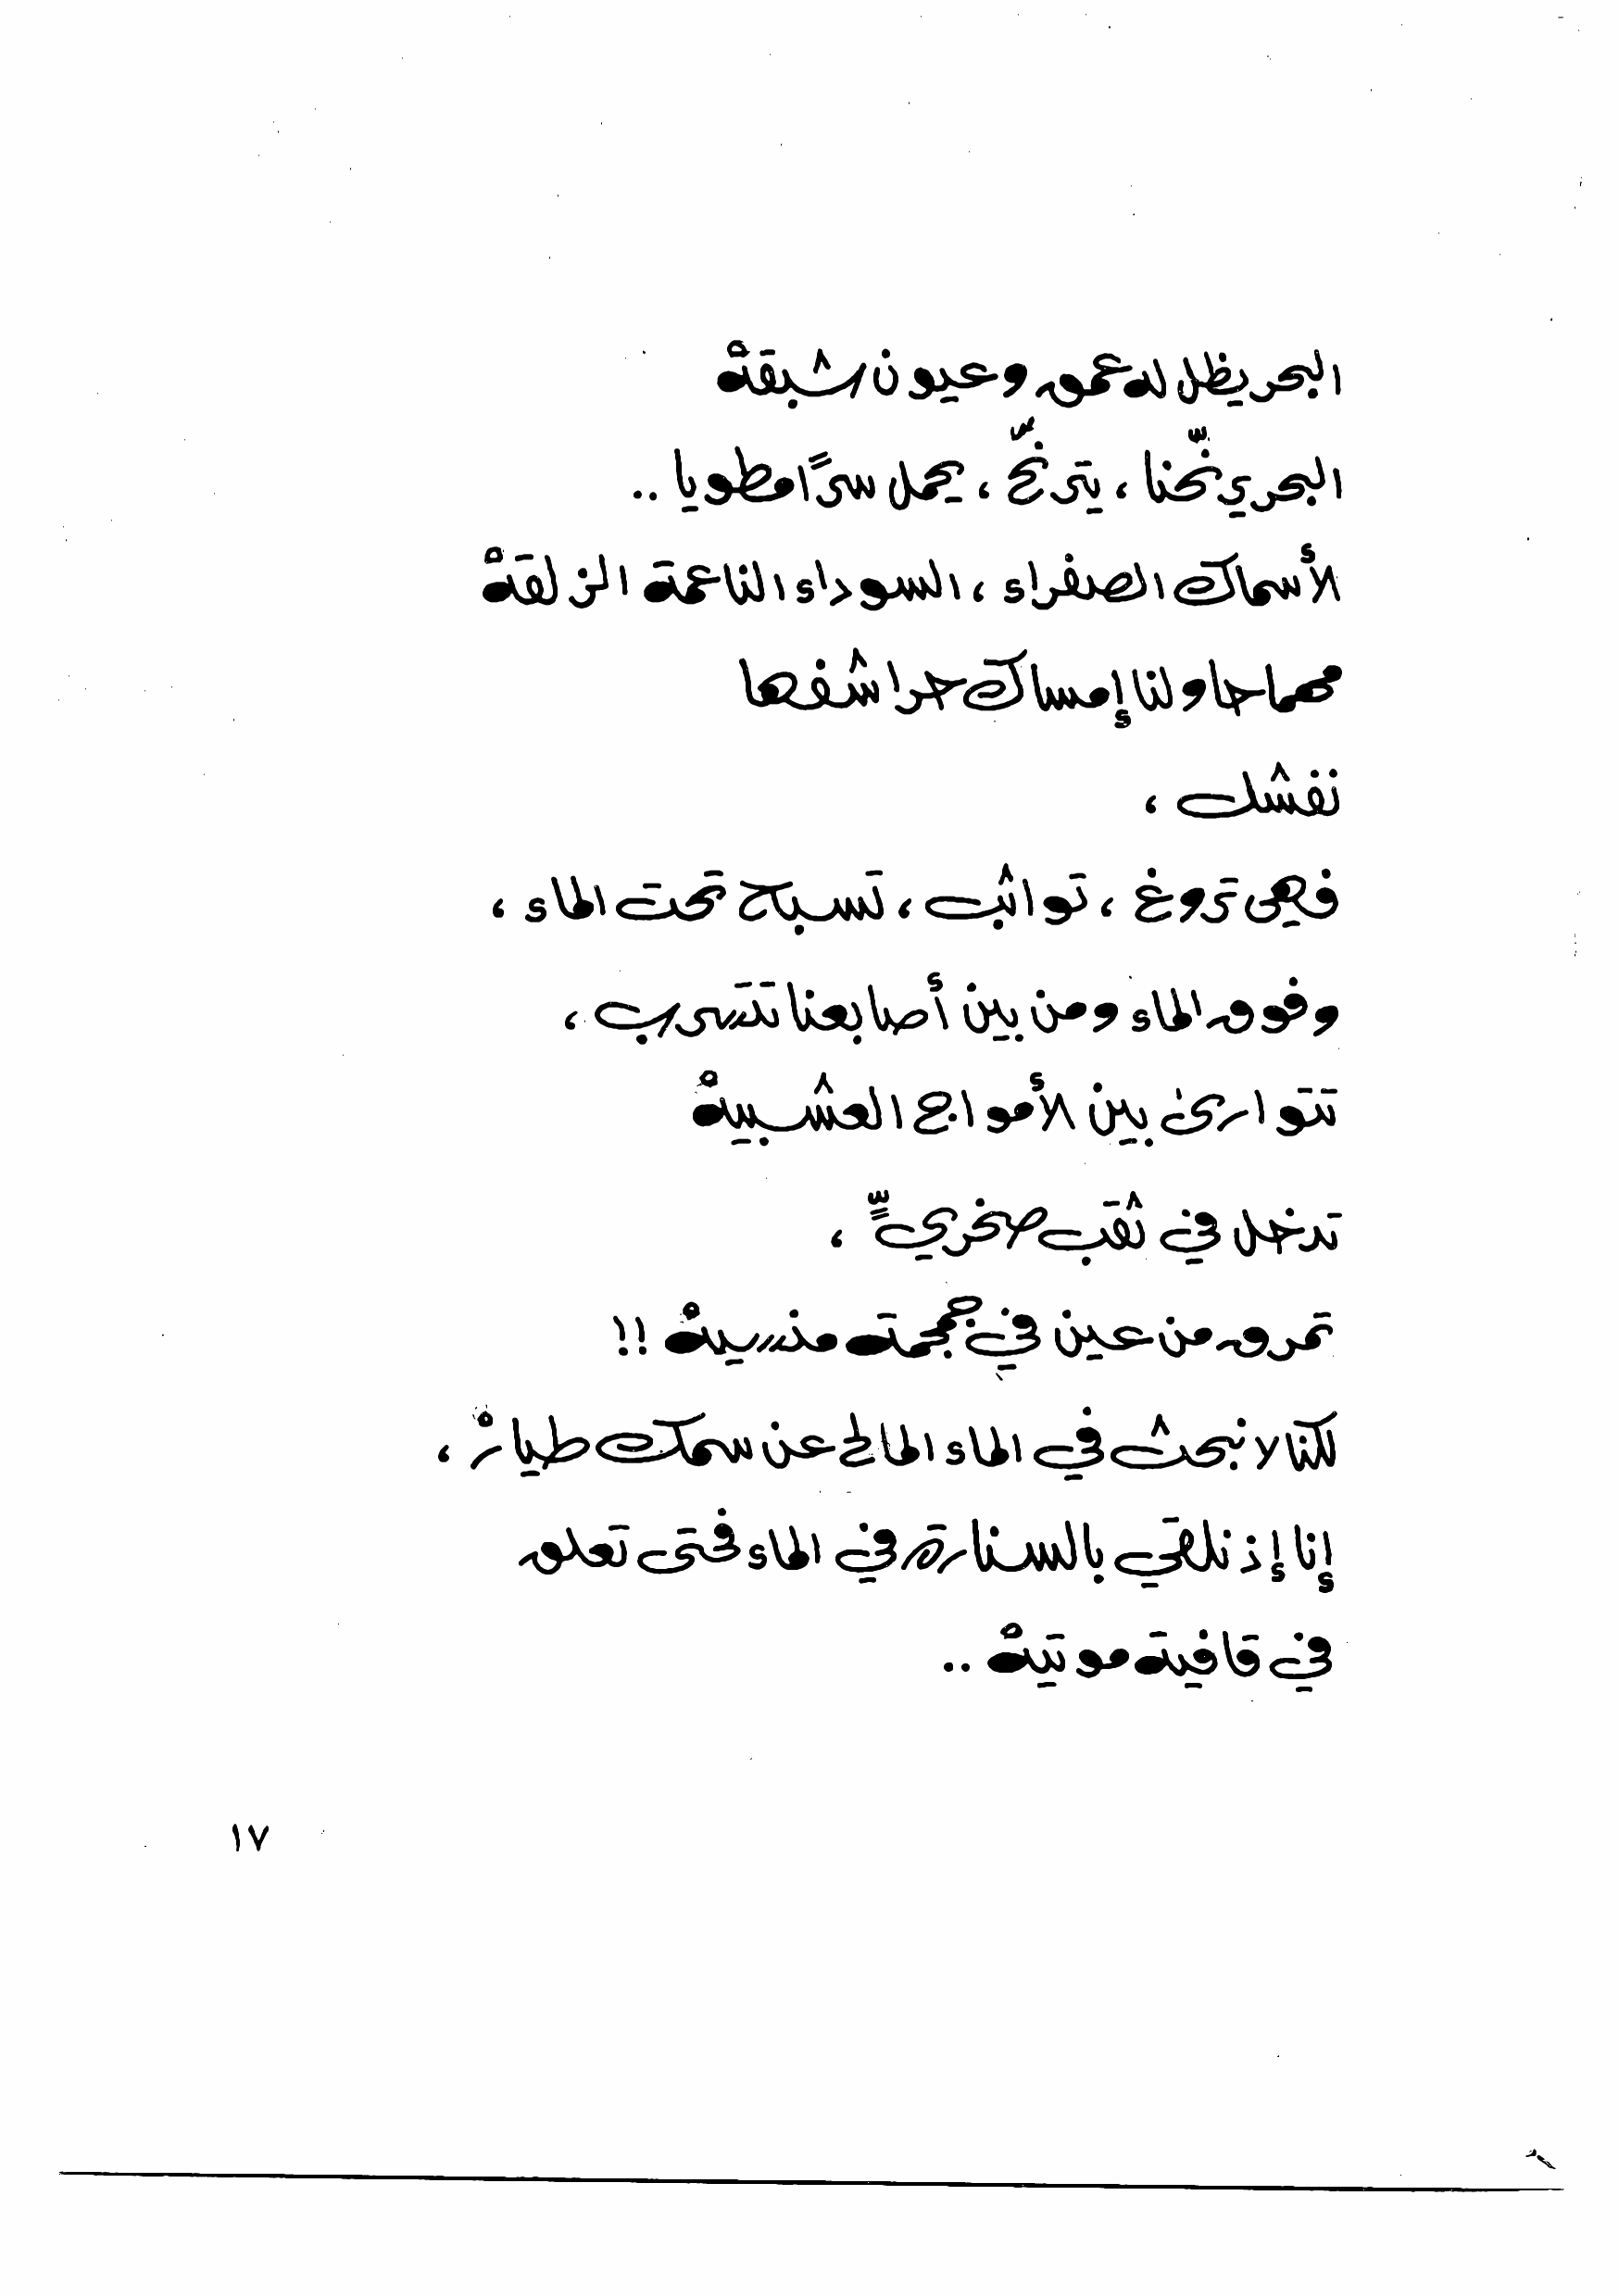 البحر يظل له عمق وعيون شبقهْ
البحر يرنّحنا ، يترنّح ، يحمل سرًا مطويا ..
الأسماك الصفراء ، السوداء الناعمة الزلقهْ
مهما حاولنا إمساك حراشفها
نفشل ،
فهى تروغ ، تواثب ، تسبح تحت الماء ،
وفوق الماء ومن بين أصابعنا تتسرب ،
تتوارى بين الأمواج العشبيهْ
تدخل في ثقب صخريٍّ ،
تمرق من عين في جمجمة منسيهْ !!
لكنا لا نبحث في الماء المالح عن سمك طيارْ ،
إنا إذ نلقي بالسنارة في الماء فحتى تعلق
في قافية موتيهْ ..
١٧